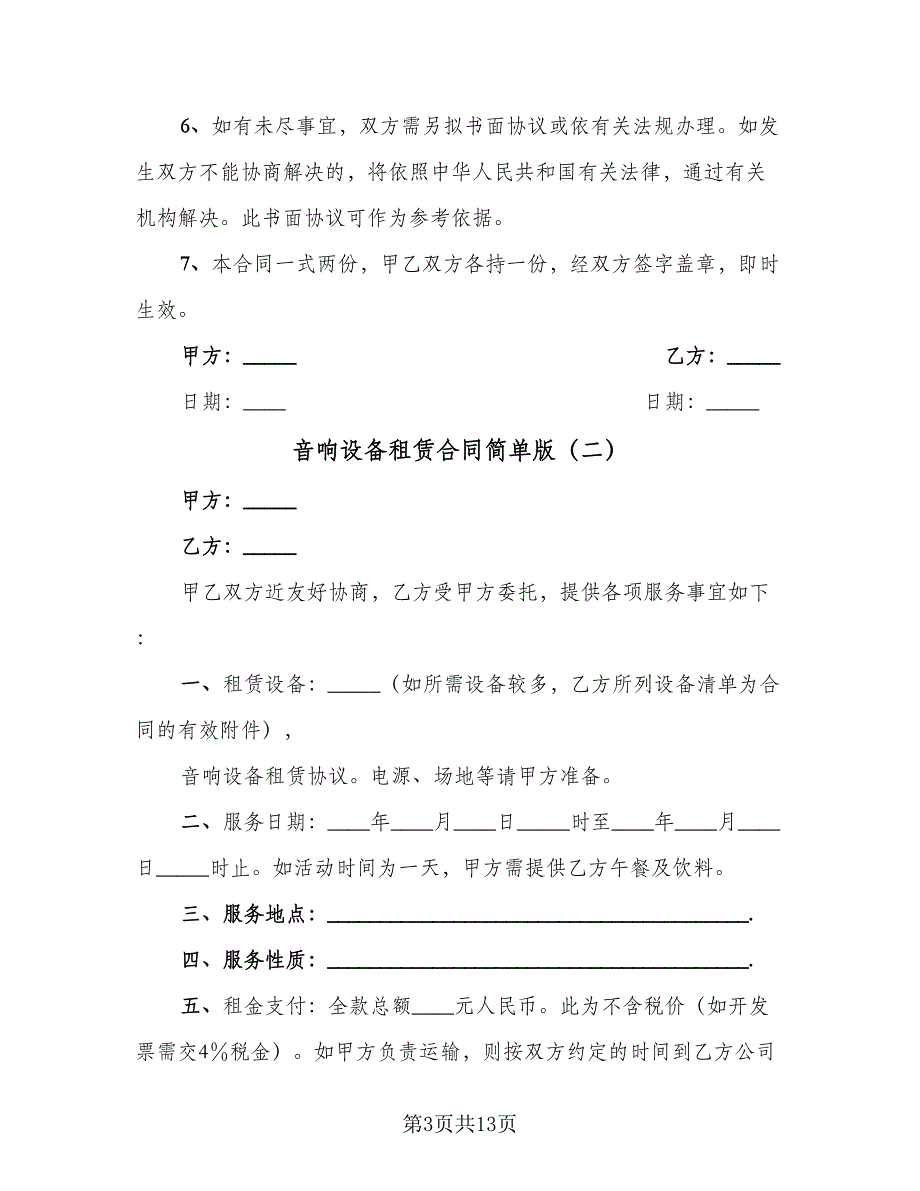 6、如有未尽事宜，双方需另拟书面协议或依有关法规办理。如发
生双方不能协商解决的，将依照中华人民共和国有关法律，通过有关
机构解决。此书面协议可作为参考依据。
7、本合同一式两份，甲乙双方各持一份，经双方签字盖章，即时
生效。
甲方：_____ 乙方：_____
日期：____ 日期：_____
音响设备租赁合同简单版（二）
甲方：_____
乙方：_____
甲乙双方近友好协商，乙方受甲方委托，提供各项服务事宜如下
：
一、租赁设备：_____（如所需设备较多，乙方所列设备清单为合
同的有效附件），
音响设备租赁协议。电源、场地等请甲方准备。
二、服务日期：____年____月____日_____时至____年____月____
日_____时止。如活动时间为一天，甲方需提供乙方午餐及饮料。
三、服务地点：________________________________________.
四、服务性质：________________________________________.
五、租金支付：全款总额____元人民币。此为不含税价（如开发
票需交4％税金）。如甲方负责运输，则按双方约定的时间到乙方公司
第3页共13页